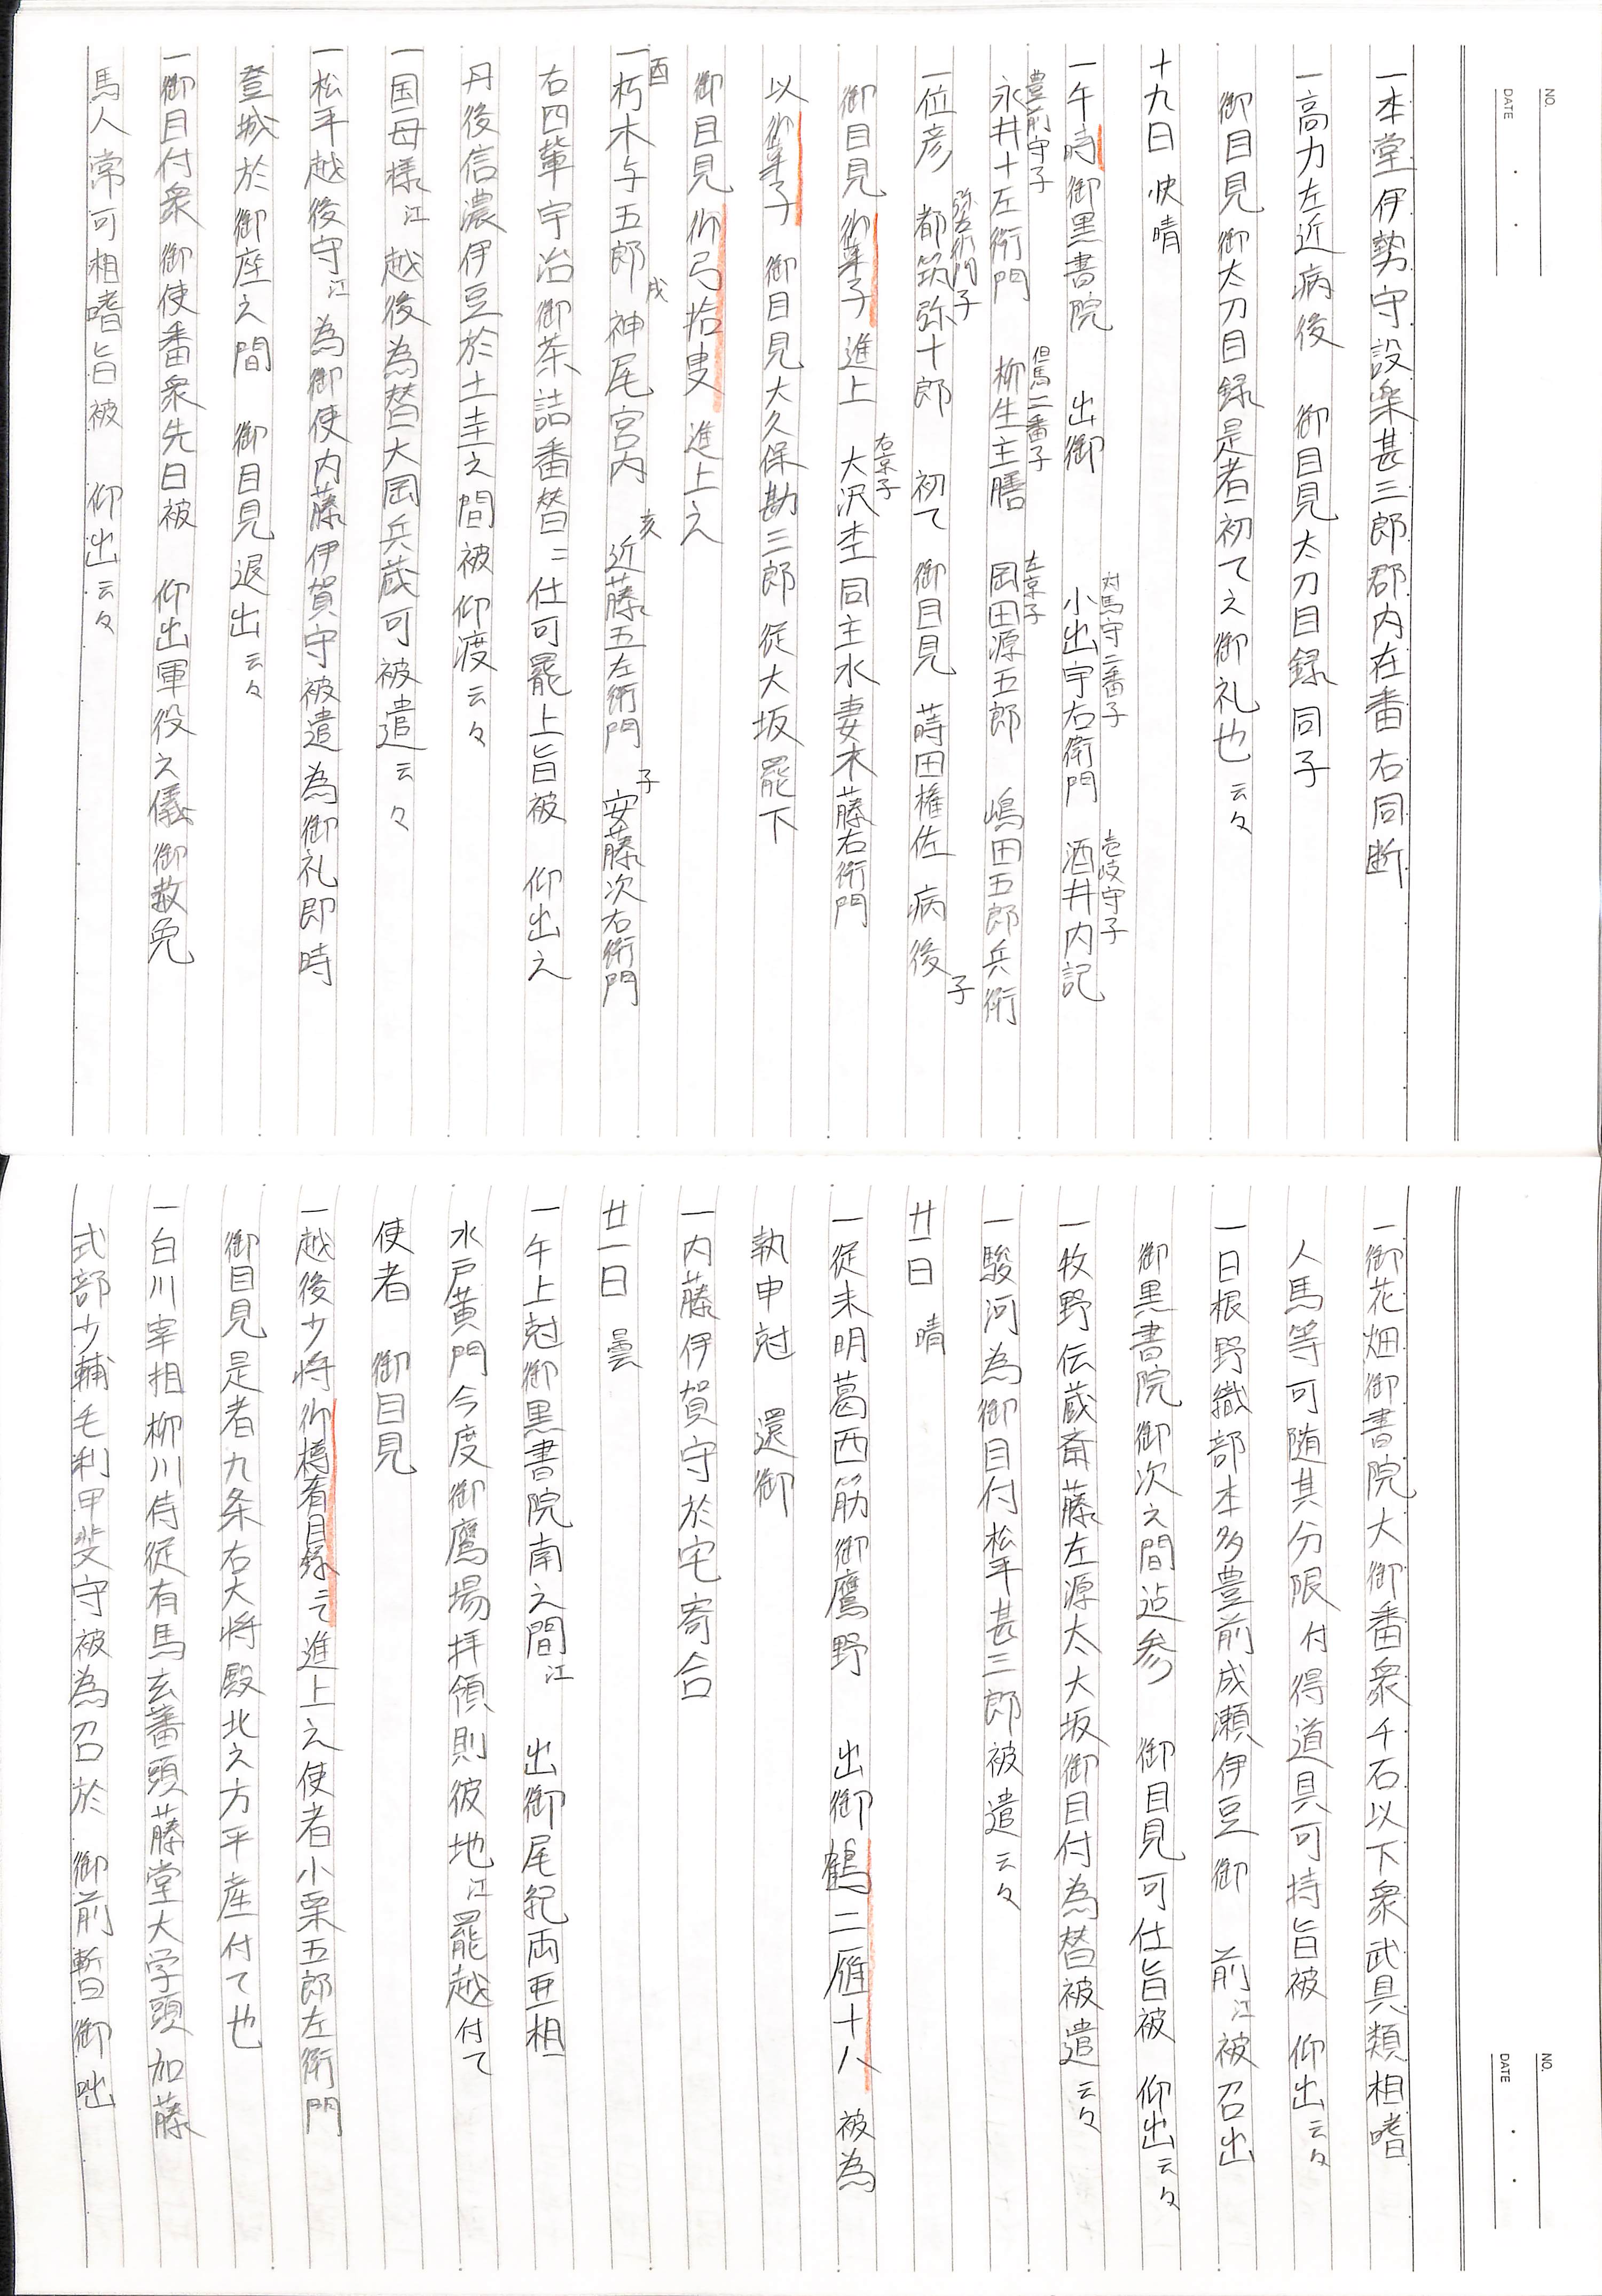 NO.
DATE
一本堂伊勢守設楽甚三郎郡内在番右同断
一高力左近病後 御目見太刀目録同子
御目見御太刀目録是者初て之御礼也云々
十九日 快晴
一午時御黒書院 出御 小出宇右衛門 酒井内記
対馬守二番子 壱岐守子
永井十左衛門 柳生主膳 岡田源五郎 嶋田五郎兵衛
豊前守子 但馬二番子 左京子
一位彦 都筑弥十郎 初て 御目見 蒔田権佐 病後
弥左衛門子 子
御目見御菓子進上 大沢杢同主水妻木藤右衛門
右京子
以御菓子 御目見大久保勘三郎従大坂罷下
御目見御弓拾叟進上之
一朽木与五郎 神尾宮内 近藤五左衛門 安藤次右衛門
酉 戌 亥 子
右四輩宇治御茶詰番替ニ仕可罷上旨被 仰出之
丹後信濃伊豆於土圭之間被仰渡云々
一国母様江越後為替大岡兵蔵可被遣云々
一松平越後守江為御使内藤伊賀守被遣為御礼即時
登城於御座之間 御目見退出云々
一御目付衆御使番衆先日被 仰出軍役之儀御赦免
馬人常可相嗜旨被 仰出云々
NO.
DATE
一御花畑御書院大御番衆千石以下衆武具類相嗜
人馬等可随其分限付得道具可持旨被 仰出云々
一日根野織部本多豊前成瀬伊豆御 前江被召出
御黒書院御次之間迠参 御目見可仕旨被 仰出云々
一牧野伝蔵斎藤左源太大坂御目付為替被遣云々
一駿河為御目付松平甚三郎被遣云々
廿日 晴
一従未明葛西筋御鷹野 出御鶴二雁十八 被為
執申尅 還御
一内藤伊賀守於宅寄合
廿一日 曇
一午上尅御黒書院南之間江 出御尾紀両亜相
水戸黄門今度御鷹場拝領則彼地江罷越付て
使者 御目見
一越後少将御樽肴目録ニて進上之使者小栗五郎左衛門
御目見是者九条右大将殿北之方平産付て也
一白川宰相柳川侍従有馬玄蕃頭藤堂大学頭加藤
式部少輔毛利甲斐守被為召於 御前暫御咄